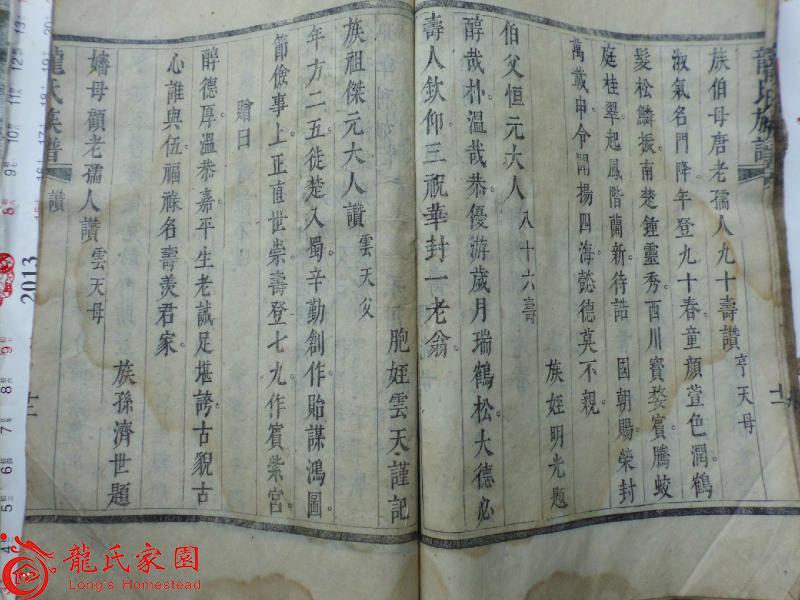 龍氏族譜
族伯母唐老孺人九十壽讚 亨天母
淑氣名門降。年登九十春。童顏萱色潤。鶴
髮松鱗振。南楚鍾靈秀。西川寶婺賓。騰蛟
庭桂翠。起鳳階蘭新。待誥 國朝賜。榮封
萬載申。令聞揚四海。懿德莫不親。
族姪明光題
伯父恒元大人 八十六壽
醇哉朴。溫哉恭。優游歲月瑞鶴松。大德必
壽人欽仰。三祝華封一老翁。
胞姪雲天謹記
族祖傑元大人讚 雲天父
年方二五。徙楚入蜀。辛勤創作。貽謀鴻圖。
節儉事上。正直世崇。壽登七九。作賓紫宮。
贈曰
醇德厚。溫恭嘉。平生老誠足堪誇。古貌古
心誰與伍。福祿名壽羨君家。
族孫濟世題
嬸母顧老孺人讚 雲天母
龍氏族譜
讚
十二
十一
2013
龍氏家園
Long's Homestead